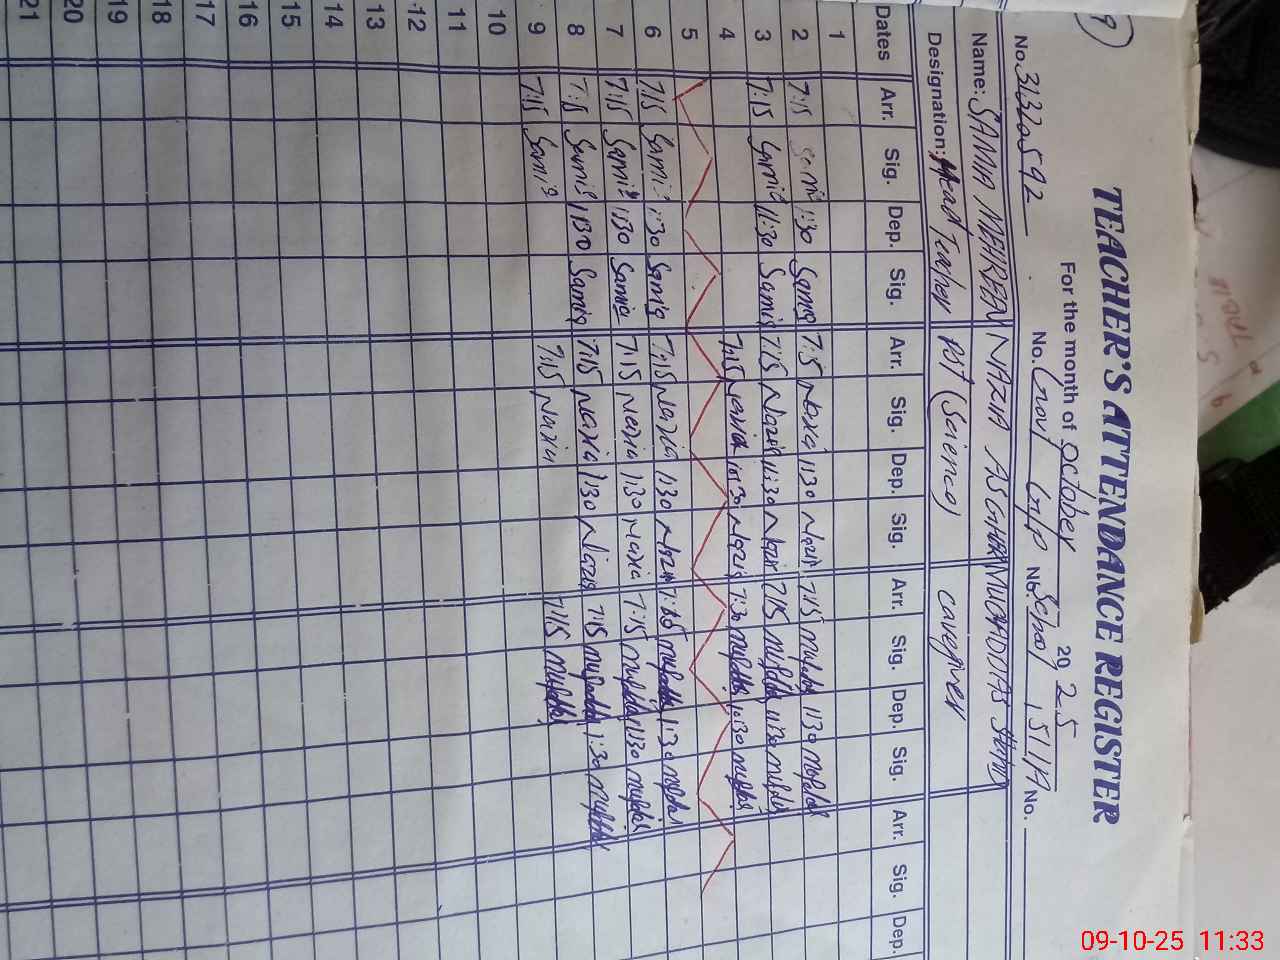 9
TEACHER'S ATTENDANCE REGISTER
For the month of October 2025
No. 31320592 No. Govt G/P No School, 51/17 No.
Name: SAMIA MEHREEN NAZIA ASGHAR
Designation: Head Teacher PST (Science) caregiver
Dates Arr. Sig. Dep. Sig. Arr. Sig. Dep. Sig. Arr. Sig. Dep. Sig. Arr. Sig. Dep.
1
2 7:15 Samia 1:30 Samia 7:15 Nazia 1:30 Nazia 7:15 1:30
3 7:15 Samia 11:30 Samia 7:15 Nazia 11:30 Nazia 7:15 11:30
4 7:15 Nazia Nazia 7:30 1:30
5
6 7:15 Samia 1:30 Samia 7:15 Nazia 1:30 Nazia 1:30
7 7:15 Samia 1:30 Samia 7:15 Nazia 1:30 Nazia 7:15 1:30
8 7:15 Samia 1:30 Samia 7:15 Nazia 1:30 Nazia 7:15 1:30
9 7:15 Samia 7:15 Nazia 7:15
10
11
12
13
14
15
16
17
18
19
20
21
09-10-25 11:33